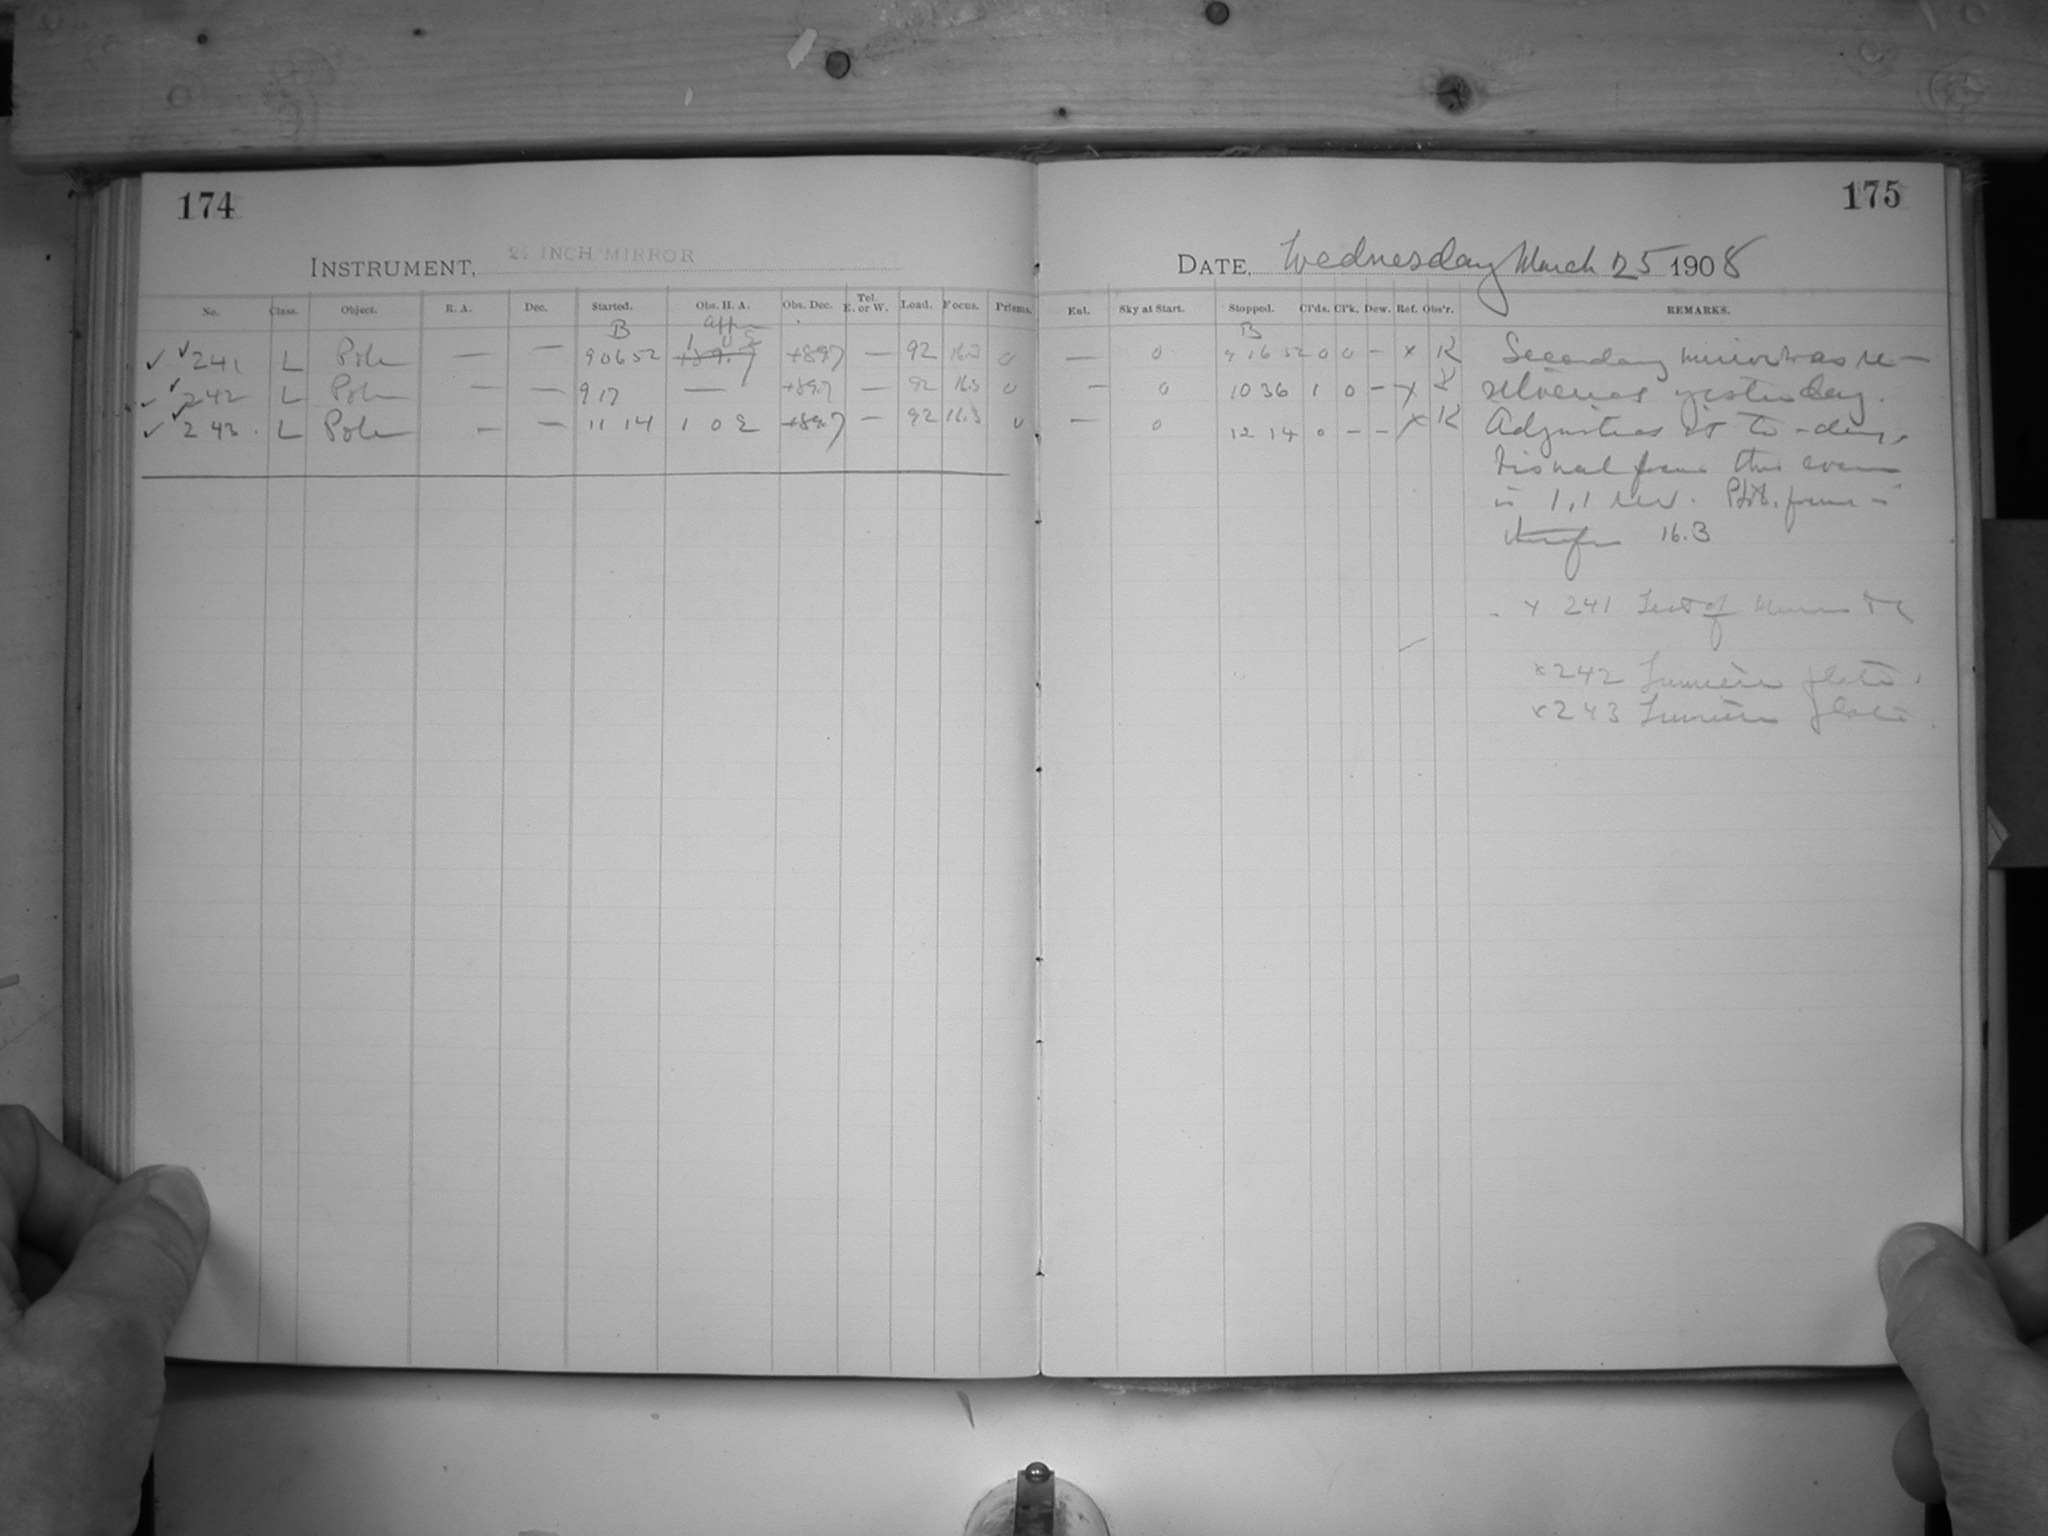 174
INSTRUMENT, 24 INCH MIRROR
No. Class. Object. R. A. Dec. Started. Obs. H. A. Obs. Dec. Tel. E. or W. Load. Focus. Prisms.
B
✓ ✓ 241 L Pole — — 9 06 52 1 0 E +89.7 — 92 16.3 0
✓ ✓ 242 L Pole — — 9 17 — +89.7 — 92 16.3 0
✓ ✓ 243. L Pole — — 11 14 1 0 E +89.7 — 92 16.3 0
175
DATE, Wednesday March 25 1908
Ent. Sky at Start. Stopped. Cl'ds. Cl'k. Dew. Ref. Obs'r. REMARKS.
B
— 0 9 16 52 0 0 — x K Secondary mirror was re-
— 0 10 36 1 0 — x K silvered yesterday.
— 0 12 14 0 — — x K Adjusted it to-day.
Visual focus this
is 1.1 rev.
16.3
x 241 Test of
x 242 Lumière plate.
x 243 Lumière plate.